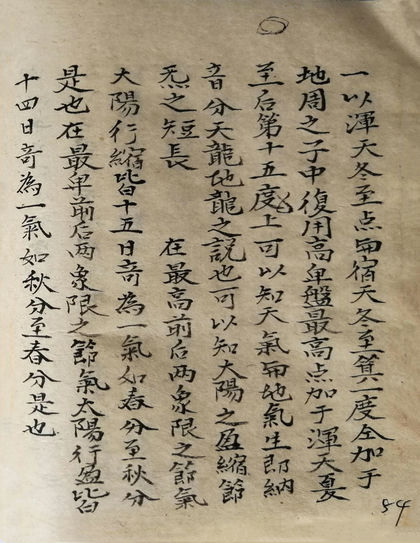 一以渾天冬至点南宿天冬至箕一度仝加于
地周之子中復用高卑盤最高点加于渾天夏
至后第十五度上可以知天氣南地氣生即納
音分天龍地龍之説也可以知太陽之盈縮節
炁之短長 在最高前后两象限之節氣
太陽行縮皆十五日竒為一氣如春分至秋分
是也在最卑前后两象限之節氣太陽行盈皆
十四日竒為一氣如秋分至春分是也
84